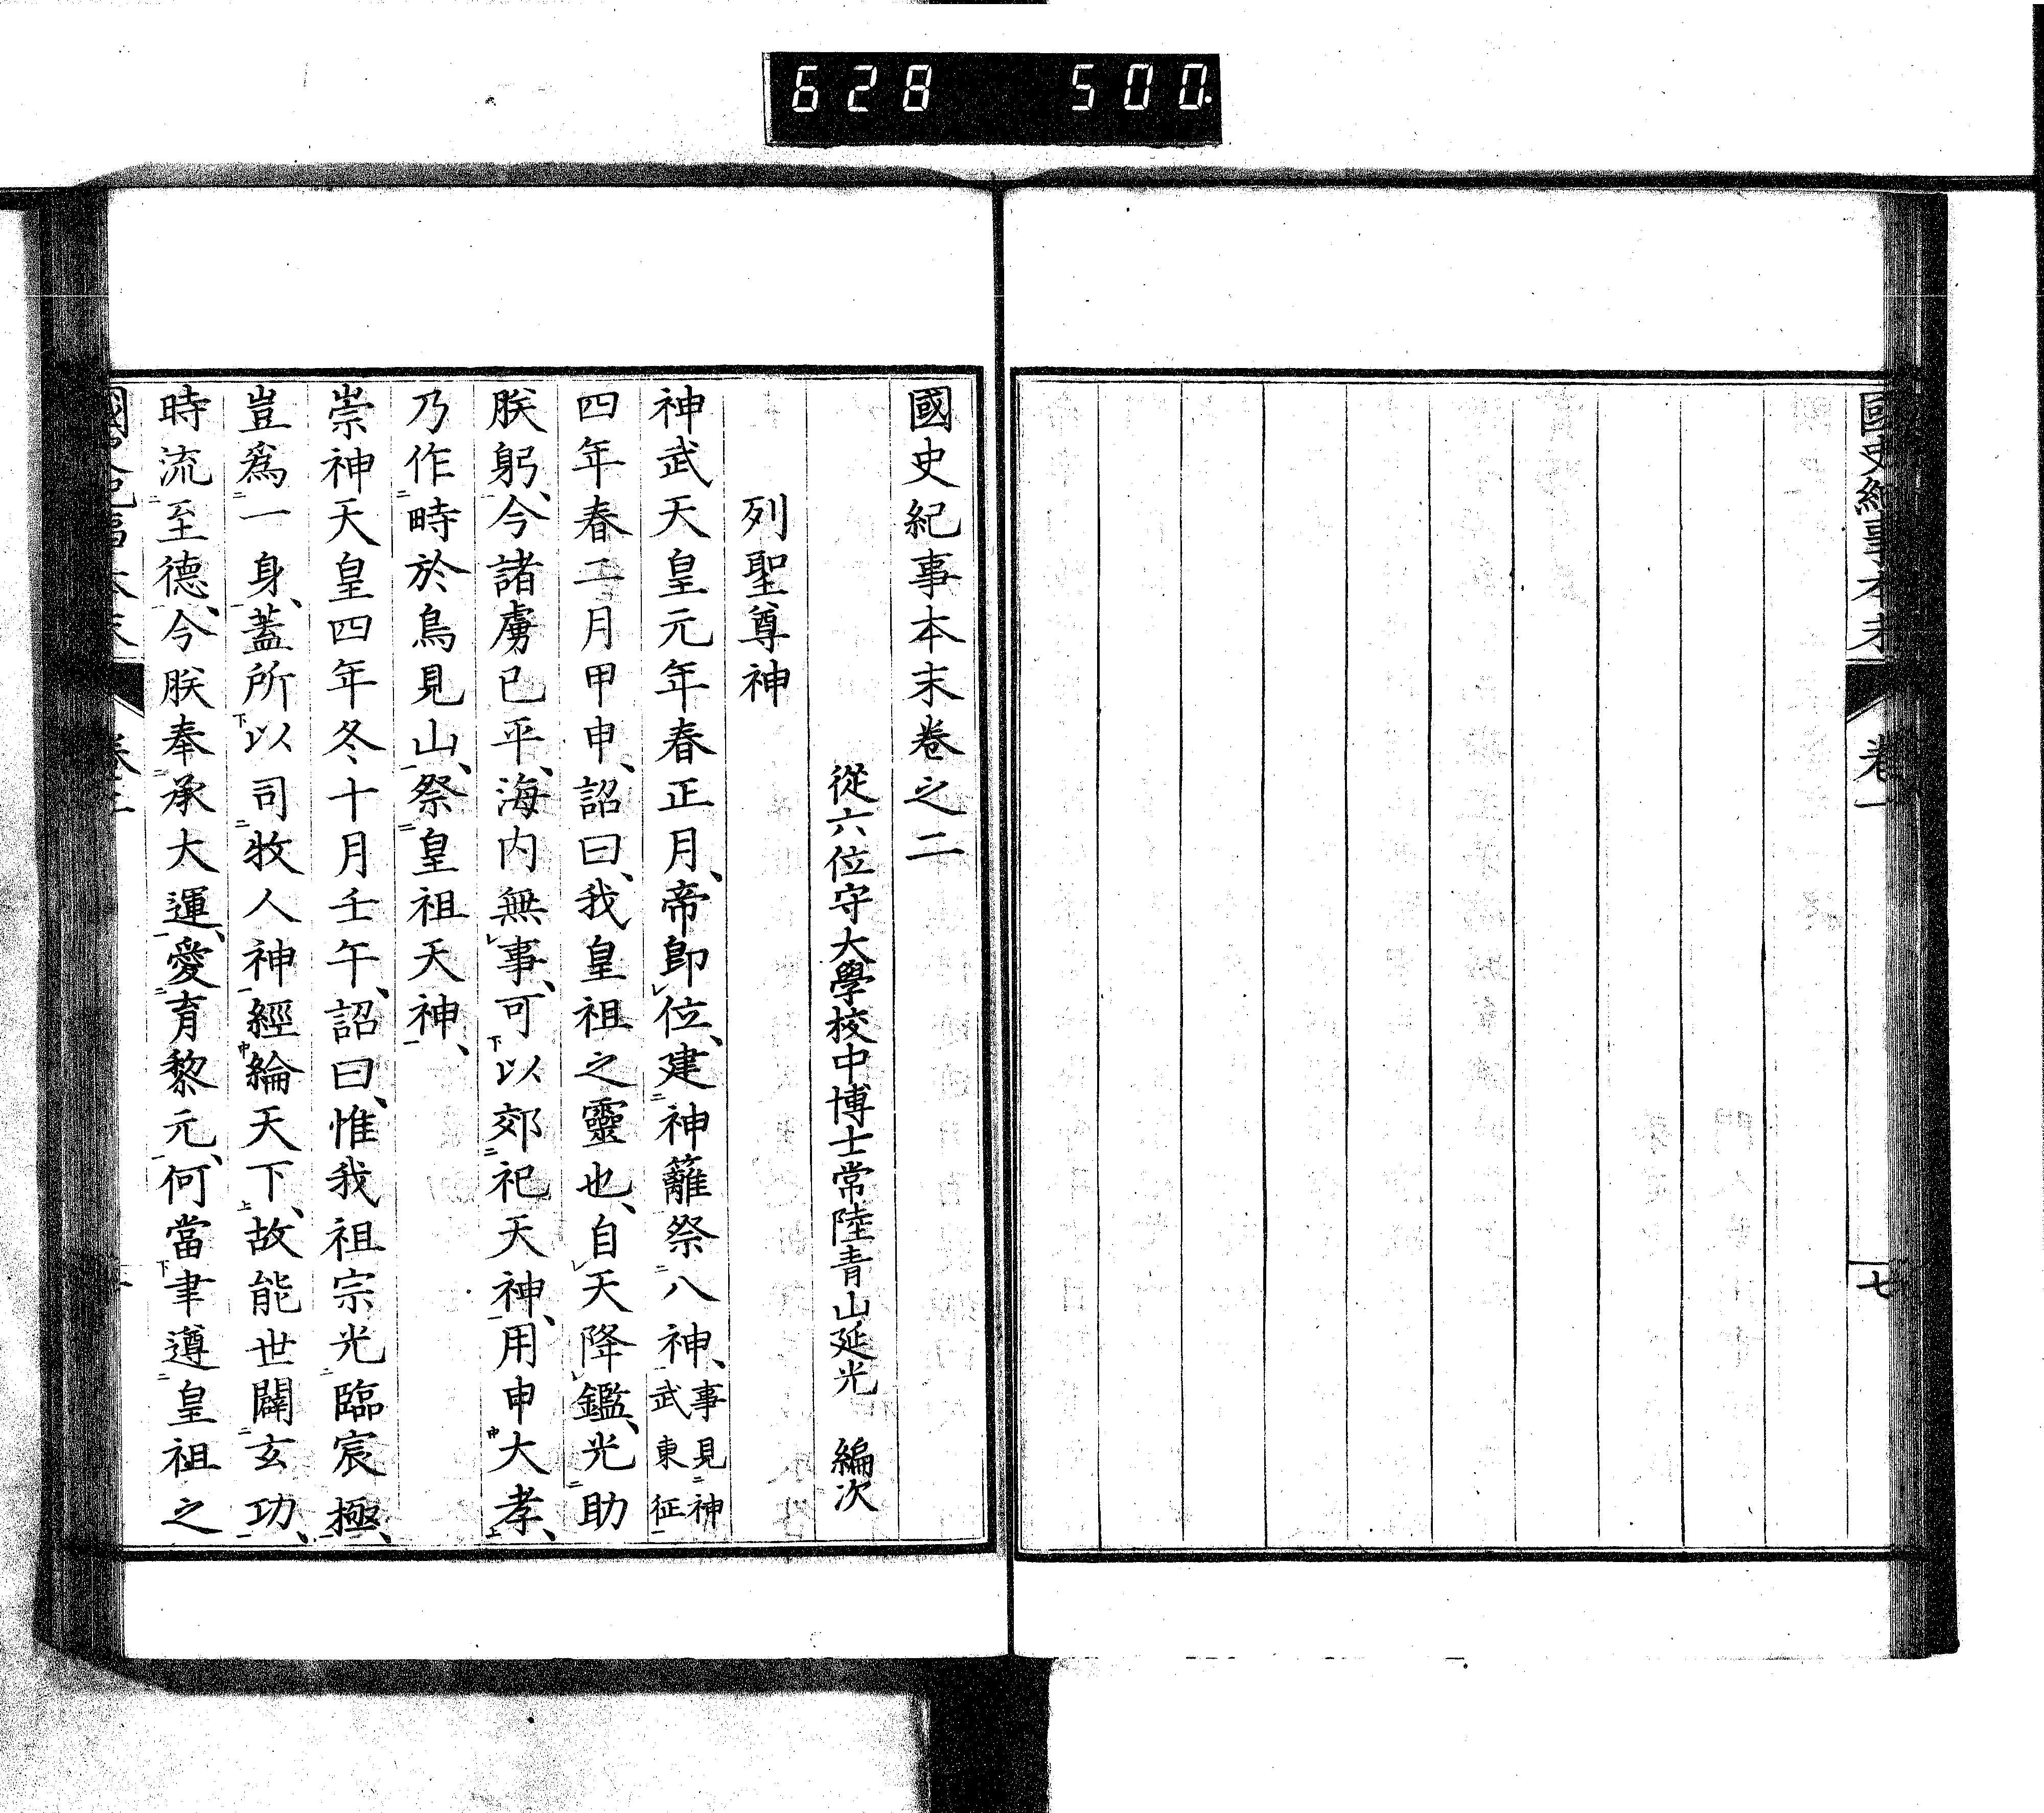 628 500
國史紀事本末
卷一
七
國史紀事本末卷之二
從六位守大學校中博士常陸青山延光 編次
列聖尊神
神武天皇元年春正月、帝卽㆑位、建㆓神籬祭㆓八神㆒、事見㆓神武東征㆒
四年春二月甲申、詔曰、我皇祖之靈也、自㆑天降㆑鑑、光㆓助
朕躬㆒、今諸虜已平、海內無㆑事、可㆘以郊㆓祀天神㆒、用申㆗大孝㆖、
乃作㆓畤於鳥見山㆒、祭㆓皇祖天神㆒、
崇神天皇四年冬十月壬午、詔曰、惟我祖宗光㆓臨宸極㆒、
豈爲㆓一身㆒、蓋所㆘以司㆓牧人神㆒經㆗綸天下㆖、故能世闢㆓玄功㆒、
時流㆓至德㆒、今朕奉㆓承大運㆒、愛㆓育黎元㆒、何當㆘聿遵㆓皇祖之